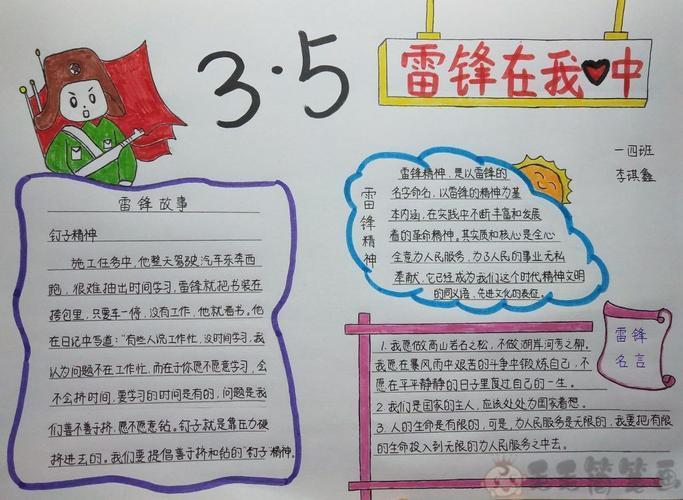 3·5
雷锋在我中
一四班
李琪鑫
雷锋故事
钉子精神
施工任务中,他整天驾驶汽车东奔西
跑,很难抽出时间学习,雷锋就把书装在
挎包里,只要车一停,没有工作,他就看书。他
在日记中写道:“有些人说工作忙,没时间学习,我
认为问题不在工作忙,而在于你愿不愿意学习,会
不会挤时间,要学习的时间是有的,问题是我
们善不善于挤,愿不愿意钻。钉子就是靠压力硬
挤进去的。我们要提倡善于挤和钻的“钉子”精神。
雷锋精神
雷锋精神,是以雷锋的
名字命名,以雷锋的精神为基
本内涵,在实践中不断丰富和发展
着的革命精神。其实质和核心是全心
全意为人民服务,为了人民的事业无私
奉献,它已经成为我们这个时代精神文明
的同义语,先进文化的表征。
雷锋
名言
1.我愿做高山岩石之松,不做湖岸河旁之柳。
我愿在暴风雨中艰苦的斗争中锻炼自己,不
愿在平平静静的日子里度过自己的一生。
2.我们是国家的主人,应该处处为国家着想。
3.人的生命是有限的,可是,为人民服务是无限的,我要把有限
的生命投入到无限的为人民服务之中去。
天天简笔画